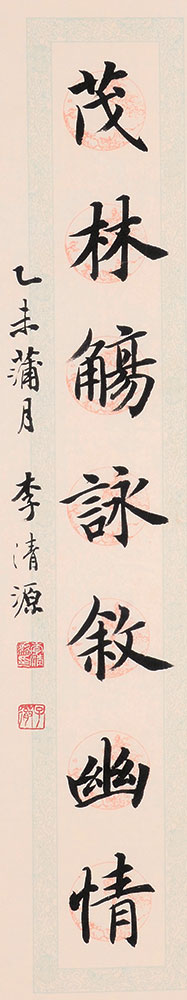 茂林觴詠敘幽情
乙未蒲月 李清源